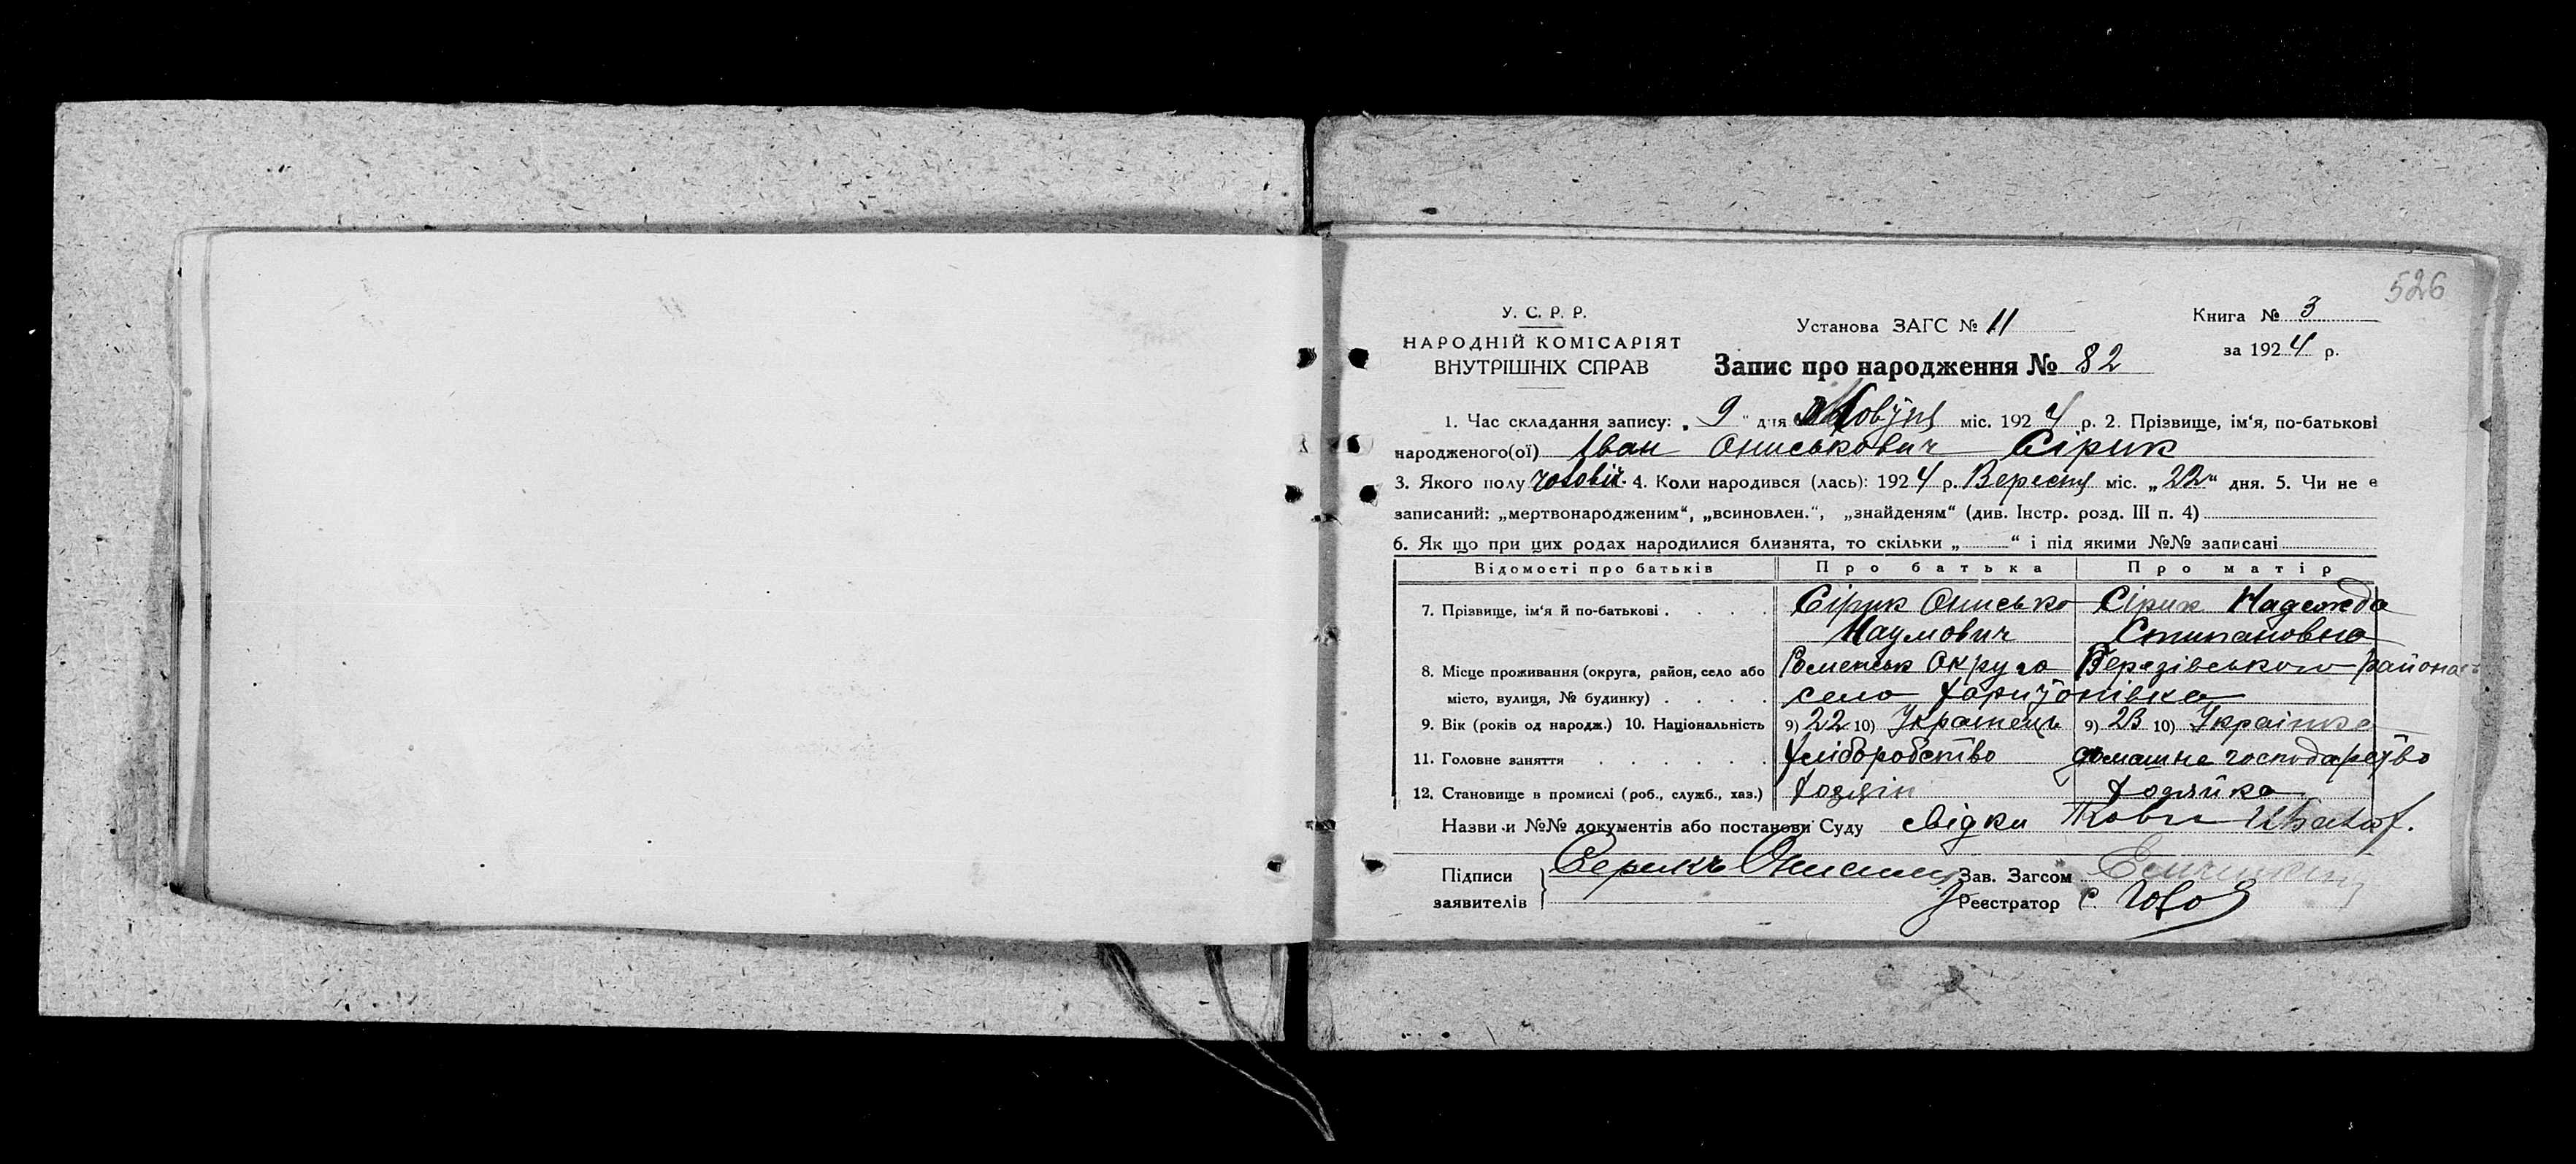 526
У. С. Р. Р.
НАРОДНІЙ КОМІСАРІЯТ
ВНУТРІШНІХ СПРАВ
Установа ЗАГС № 11
Книга № 3
за 1924 р.
Запис про народження № 82
1. Час складання запису: „ 9 " дня Жовтня міс. 1924 р. 2. Прізвище, ім'я, по-батькові
народженого(ої) ІванОниськович Сірик
3. Якого полу чоловіч. 4. Коли народився (лась): 1924 р. Вересня міс. „22" дня. 5. Чи не є
записаний: „мертвонародженим", „всиновлен.", „знайденям" (див. Інстр. розд. III п. 4)
6. Як що при цих родах народилися близнята, то скільки „ " і під якими №№ записані
Відомості про батьків Про батька Про матір
7. Прізвище, ім'я й по-батькові . . . . Сірик Онисько Сірик Надежда
Наумович Степановна
8. Місце проживання (округа, район, село або Роменськ Округа Березівського района
місто, вулиця, № будинку) . . . . село Харитонівка
9. Вік (років од народж.) 10. Національність 9) 22 10) Українець 9) 23 10) Українка
11. Головне заняття . . . . . . Хліборобство домашнє господарство
12. Становище в промислі (роб., служб., хаз.) Хозяїн Хозяйка
Назви и №№ документів або постанови Суду свідки
Підписи
заявителів Серикъ Зав. Загсом
Реєстратор С.